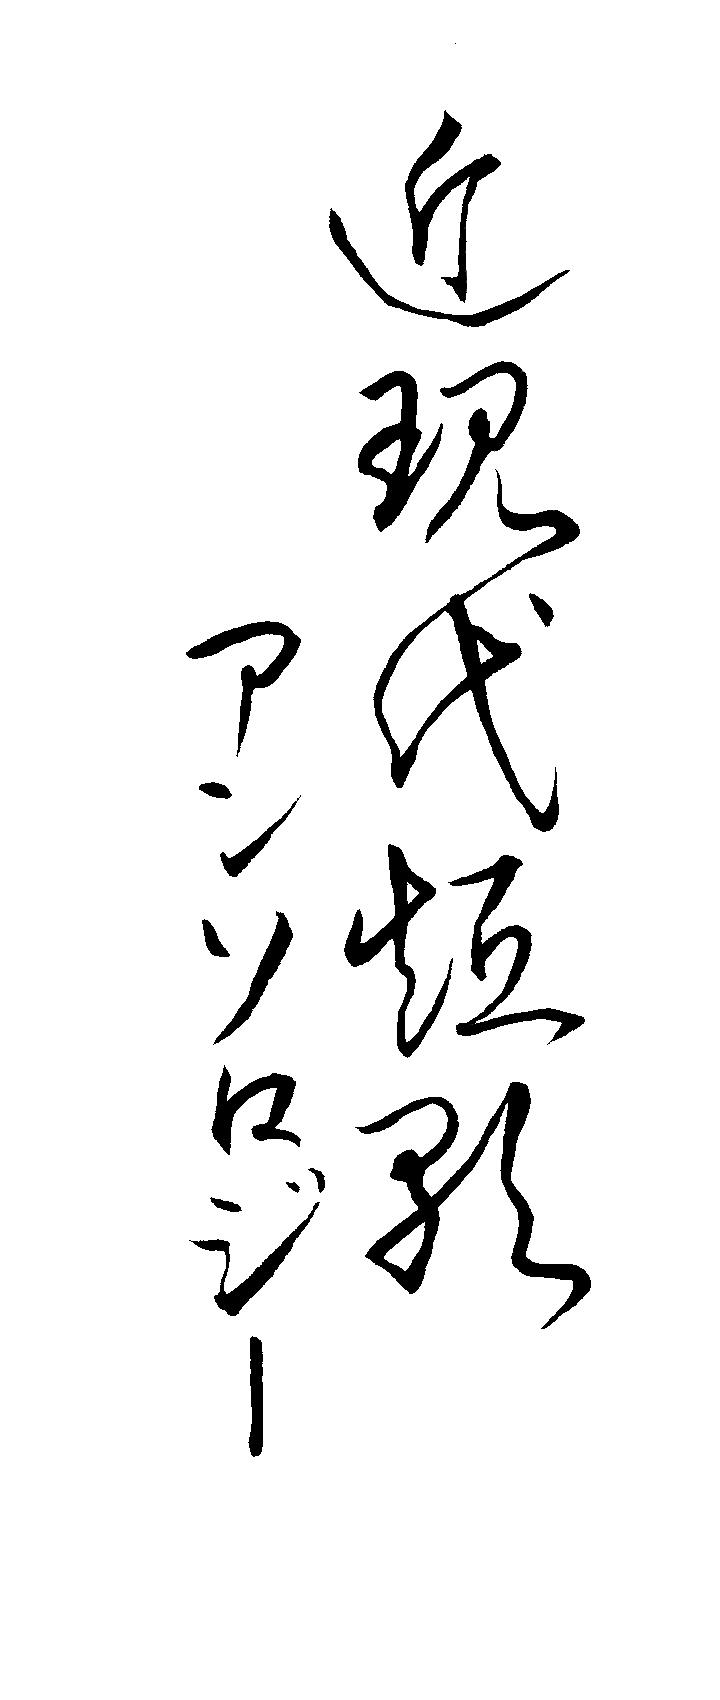 近現代短歌
アンソロジー